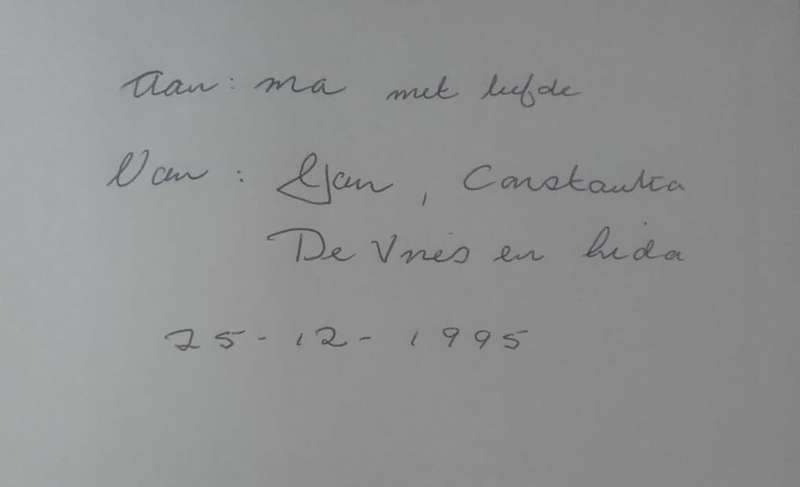 Aan: ma met liefde
Van: Jan, Constantia
De Vries en Lida
25-12-1995